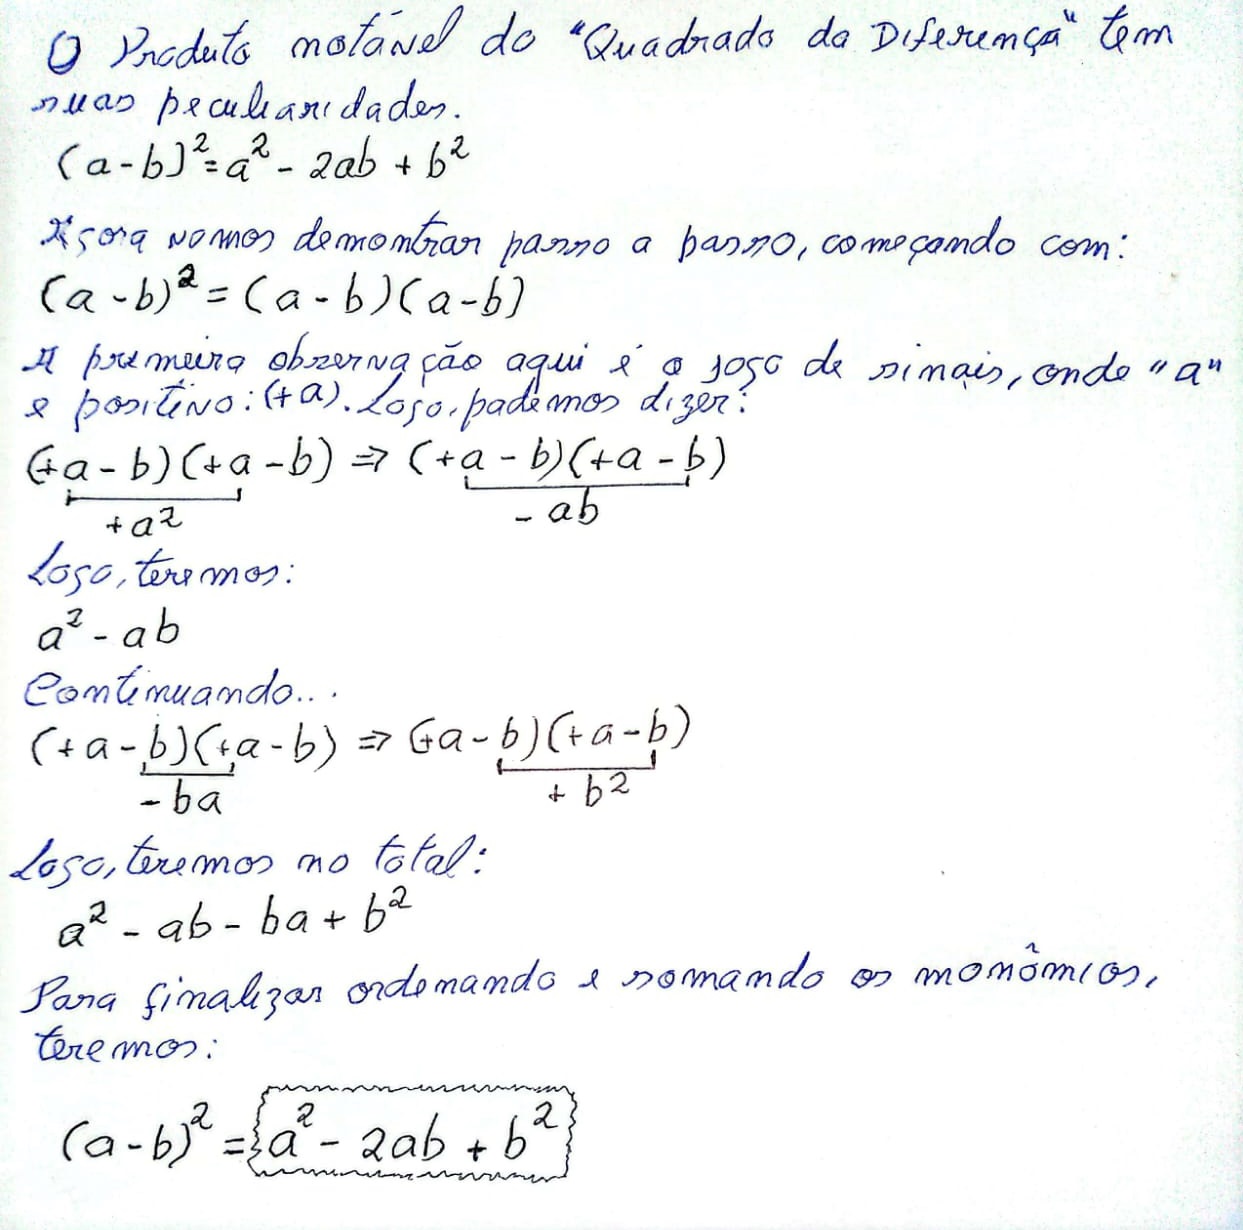 O Produto notável do "Quadrado da Diferença" tem
suas peculiaridades.
(a-b)² = a² - 2ab + b²
Agora vamos demontrar passo a passo, começando com:
(a-b)² = (a-b)(a-b)
A primeira observação aqui é o jogo de sinais, onde "a"
e positivo: (+a). Logo, podemos dizer:
(+a-b)(+a-b) ⇒ (+a-b)(+a-b)
+a² - ab
Logo, teremos:
a² - ab
Continuando...
(+a-b)(+a-b) ⇒ (+a-b)(+a-b)
-ba + b²
Logo, teremos no total:
a² - ab - ba + b²
Para finalizar ordenando e somando os monômios,
teremos:
(a-b)² = a² - 2ab + b²